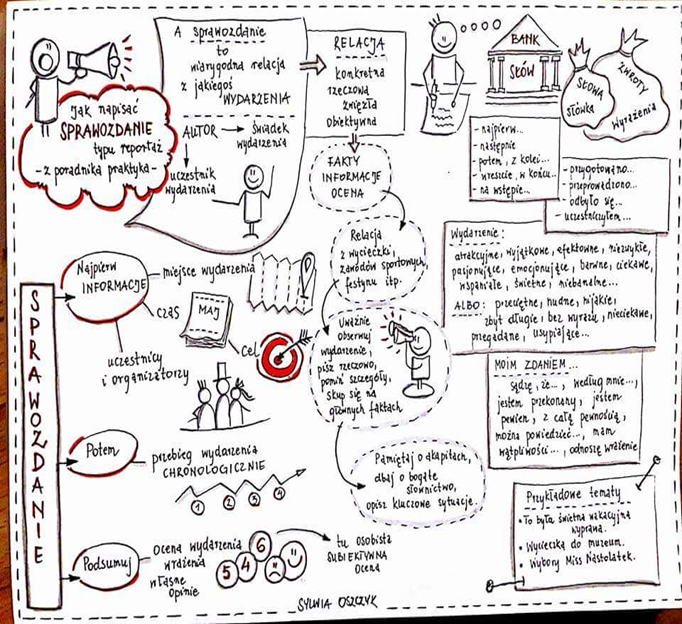 Jak napisać
SPRAWOZDANIE
typu reportaż
- z poradnika praktyka -
A sprawozdanie
to
wiarygodna relacja
z jakiegoś
WYDARZENIA
AUTOR → świadek
wydarzenia
uczestnik
wydarzenia
RELACJA
konkretna
rzeczowa
zwięzła
obiektywna
FAKTY
INFORMACJE
OCENA
Relacja
z wycieczki,
zawodów sportowych,
festynu itp.
Uważnie
obserwuj
wydarzenie,
pisz rzeczowo,
pomiń szczegóły,
skup się na
głównych faktach
Pamiętaj o akapitach,
dbaj o bogate
słownictwo,
opisz kluczowe sytuacje.
BANK
SŁÓW
SŁOWA
SŁÓWKA
ZWROTY
Wyrażenia
- najpierw...
- następnie
- potem, z kolei...
- wreszcie, w końcu...
- na wstępie...
- przygotowano...
- przeprowadzono...
- odbyło się...
- uczestniczyłem...
Wydarzenie:
atrakcyjne, wyjątkowe, efektowne, niezwykłe,
pasjonujące, emocjonujące, barwne, ciekawe,
wspaniałe, świetne, niebanalne...
ALBO: przeciętne, nudne, nijakie,
zbyt długie, bez wyrazu, nieciekawe,
przegadane, usypiające...
MOIM ZDANIEM...
sądzę, że..., według mnie...,
jestem przekonany, jestem
pewien, z całą pewnością,
można powiedzieć..., mam
wątpliwości..., odnoszę wrażenie
Przykładowe tematy
• To była świetna wakacyjna
wyprawa.
• Wycieczka do muzeum.
• Wybory Miss Nastolatek.
SPRAWOZDANIE
Najpierw
INFORMACJE
miejsce wydarzenia
czas
MAJ
cel
uczestnicy
i organizatorzy
Potem
przebieg wydarzenia
CHRONOLOGICZNIE
1 2 3 4
Podsumuj
ocena wydarzenia
wrażenia
własne
opinie
5 4 6
tu osobista
SUBIEKTYWNA
ocena
SYLWIA OSZCZYK